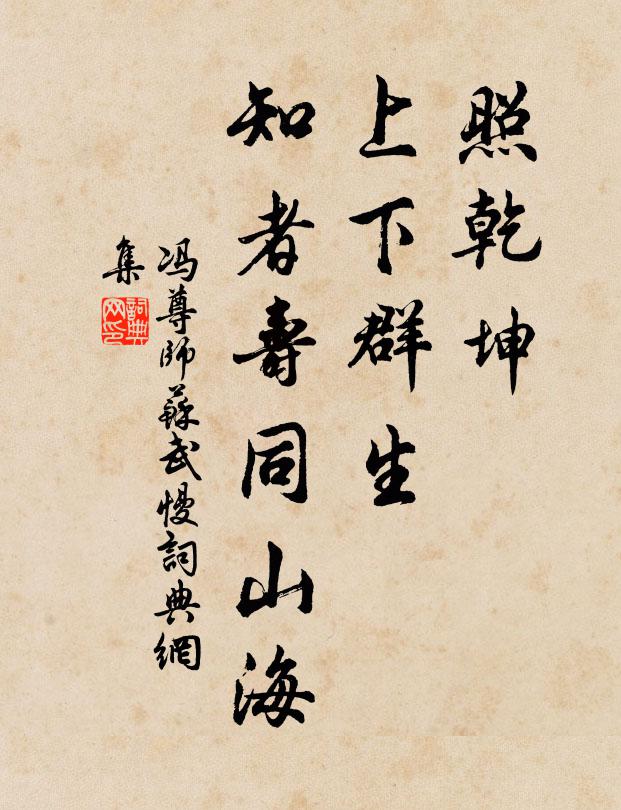 照乾坤
上下群生
知者壽同山海
冯尊師蘇武慢詞典網
集
詞典
网印